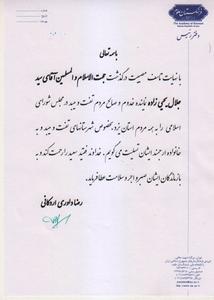 فرهنگستان علوم
The Academy of Sciences
دفتر رئیس
باسمه‌تعالی
با نهایت تأسف مصیبت درگذشت حجت‌الاسلام و المسلمین آقای سید
جلال یحیی زاده نماینده خدوم و صالح مردم تفت و میبد در مجلس شورای
اسلامی را به همه مردم استان یزد بخصوص شهرستانهای تفت و میبد و به
خانواده ارجمند ایشان تسلیت می گویم. خداوند فقید سعید را رحمت کند و به
بازماندگان ایشان صبر و اجر و سلامت عطا فرماید.
رضا داوری اردکانی